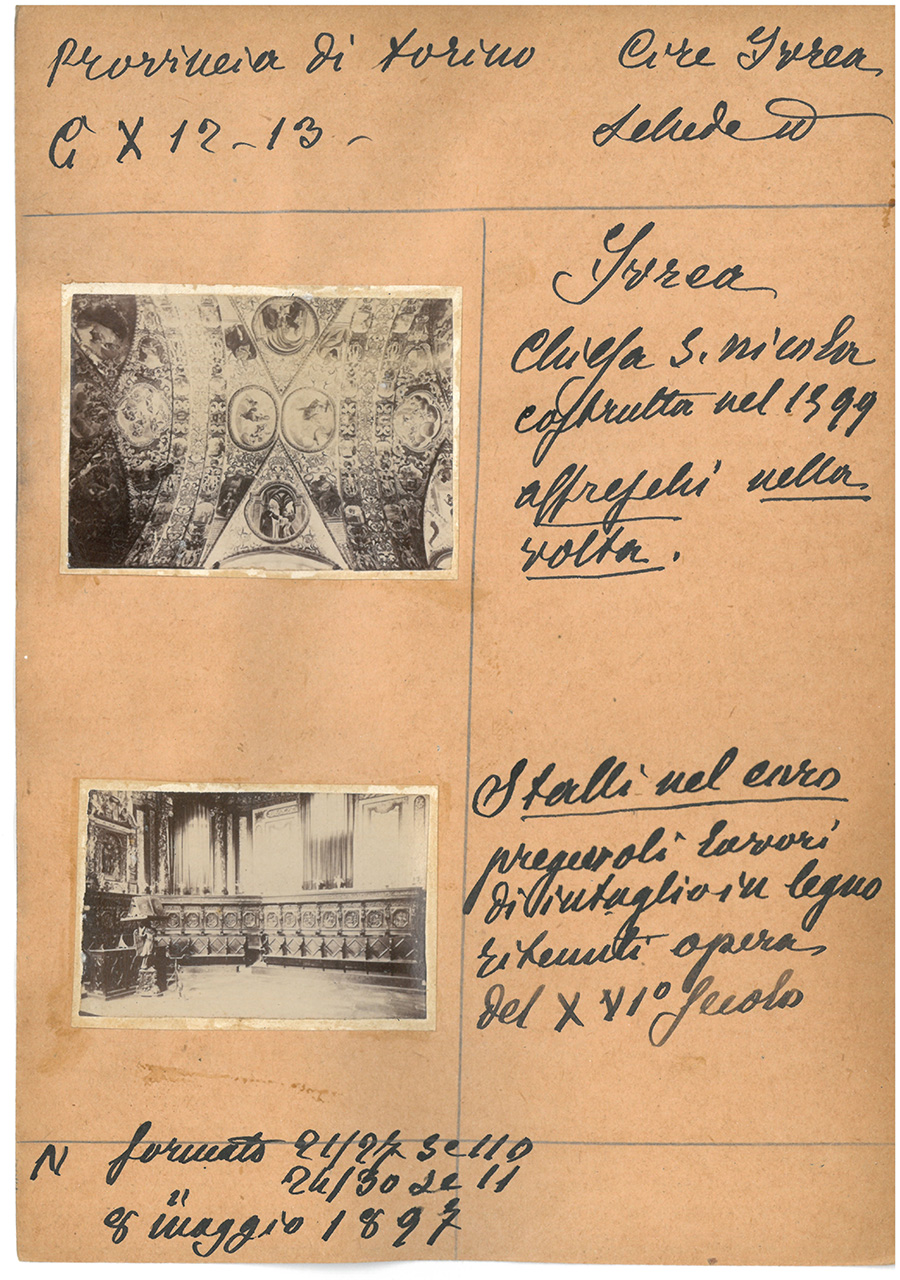 Provincia di Torino Circ Ivrea
G X 12-13-
Ivrea
Chiesa S. Nicola
costrutta nel 1399
affreschi nella
volta.
Stalli nel coro
pregevoli lavori
di intaglio in legno
ritenuti opera
del XVIº secolo
N formato 21/27
24/30
8 maggio 1897